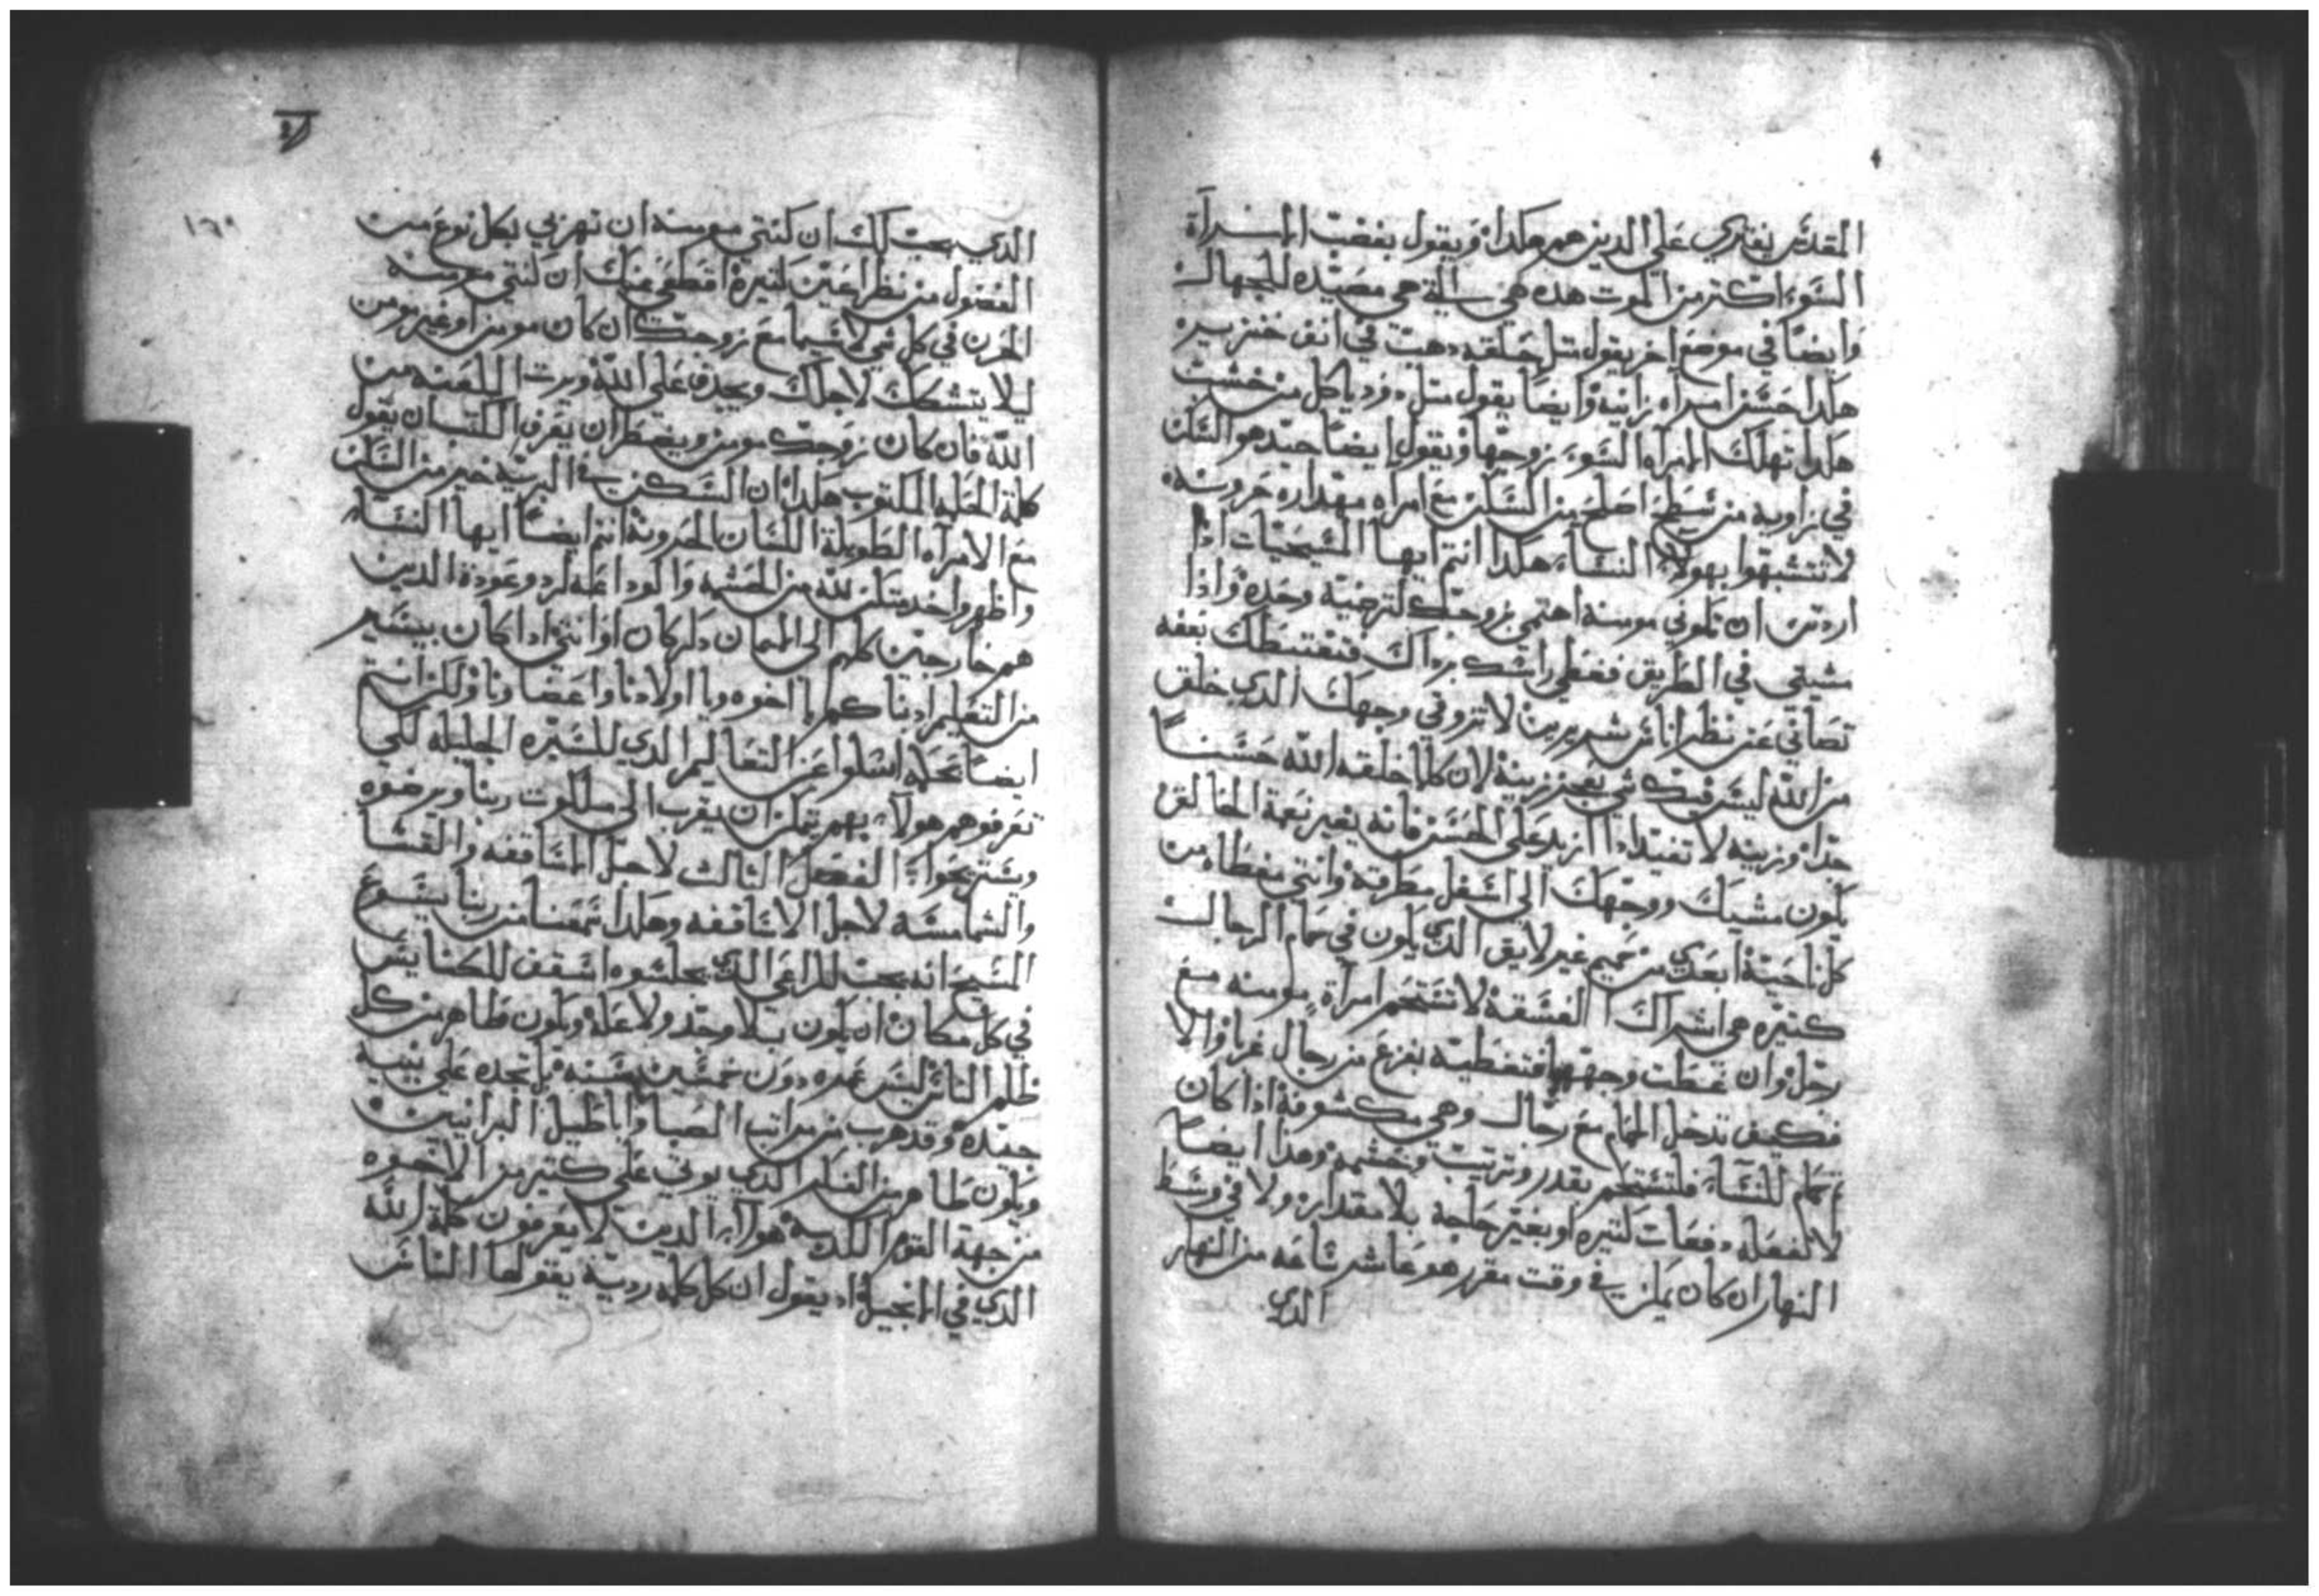 المقدس يفتري علي الدين هم هكدا ويقول بغضت المراة
السوء اكتر من الموت هده هي سالة هي مصيده للجهال
وايضا في موضع اخر يقول متل حلقه دهب في انف خنزير
هكدا حسن امراه زانيه وايضا يقول متل دود ياكل من خشب
هكدا تهلك المراه السوء زوجها ويقول ايضا جيد هو السكن
في زاويه من سطح اصلح من السكن مع امراه مهداره حروسه
لا تتشبهوا بهولاء النساء هكدا انتم ايها المسيحيات ادا
اردتن ان تكوني مومنه اهتمي بزوجك لترضيه وحده وادا
مشيتي في الطريق فغطي راسك برداك بعفه
تصاني عن نظر اناس شريرين لا تزوقي وجهك الدي خلق
من الله ليس فيك شي يعجز زينه لان كلما خلقه الله حسنا
جدا وزينه لا تفيد ادا ازيد علي الحسن فانه يغير نعمة الخالق
يكون مشيك ووجهك الي اسفل مطرقه وانتي مغطاه من
كل ناحية ابعدي من حميم غير لايق الدي يكون في حمام الرجال
كتيره هي اشراك الفسقه لا تستحم امراة مومنه مع
رجل وان غطت وجهها فتغطيه بفزع من رجال غربا والا
فكيف تدخل الحمام مع رجال وهي مكشوفة اذا كان
حمام للنساء فلتستحم بقدر وترتيب وحشمه وهدا ايضا
لا تفعله دفعات كتيره او بغير حاجة بلا مقدار ولا في وسط
النهار ان كان يمكن في وقت مقرر هو عاشر ساعه من النهار
الدي
١٦٠
الدي يجب لك ان كنتي مومنه ان تهربي بكل نوع من
الفضول من نظر اعين كتيرة اقطعي عنك ان كنتي مومنه
الحرن في كل شي لاسيما مع زوجك ان كان مومن او غير مومن
ليلا يتشكك لاجلك ويجدف علي الله ويرت اللعنه من
الله فان كان زوجك مومن ويضطر ان يعرف الكتب ان يقول
كلمة الحكمه المكتوب هكدا ان السكن في البريه خير من السكن
مع الامراه الطويلة اللسان الحرونة انتم ايضا ايها النساء
واظهروا خدمتكن لله من الحشمه والوداعه لرد وعودة الدين
هم خارجين كلهم الي الايمان دكر كان او انتي ادا كان بيسير
من التعليم ادبناكم يا اخوه ويا اولادنا واعضاونا ولكن انتم
ايضا بحكمه اسلوا عن التعاليم الدي للسيره الجليله لكي
تعرفوهم هولاء بهم يمكن ان يقرب الي ملكوت ربنا ويرضوه
ويستريحوا الفصل التالت لاجل المساقفه والقسا
والشمامسه لاجل الاساقفه وهكدا سمعنا من ربنا يسوع
المسيح انه يجب للراعي الدي يجلسوه اسقف للكنايس
في كل مكان ان يكون بلا وجد ولا عله ويكون طاهر من كل
ظلم الناس ليس عمره دون خمسين سنه بل تجده علي بنيه
جيده وقد هرب من مراتب الصبا واباطيل البرانيين
ويكون طاهر من الدي يوتي علي كتير من الاخوه
من جهة القوم الكدبه هولاء الدين لا يعرفون كلمة الله
الدي في الانجيل اد يقول ان كل كلمه رديه يقولها الناس